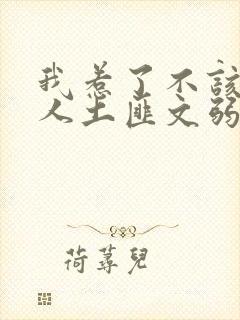 我惹了不该
人土匪文弱
荷蕁兒